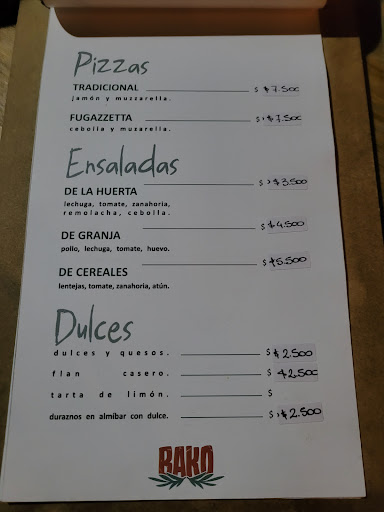 Pizzas
TRADICIONAL $ $7.500
jamón y muzzarella.
FUGAZZETTA $ $7.500
cebolla y muzarella.
Ensaladas
DE LA HUERTA $ $3.500
lechuga, tomate, zanahoria,
remolacha, cebolla.
DE GRANJA $ $4.500
pollo, lechuga, tomate, huevo.
DE CEREALES $ $5.500
lentejas, tomate, zanahoria, atún.
Dulces
dulces y quesos. $ $2.500
flan casero. $ $2.500
tarta de limón. $
duraznos en almíbar con dulce. $ $2.500
BAKO